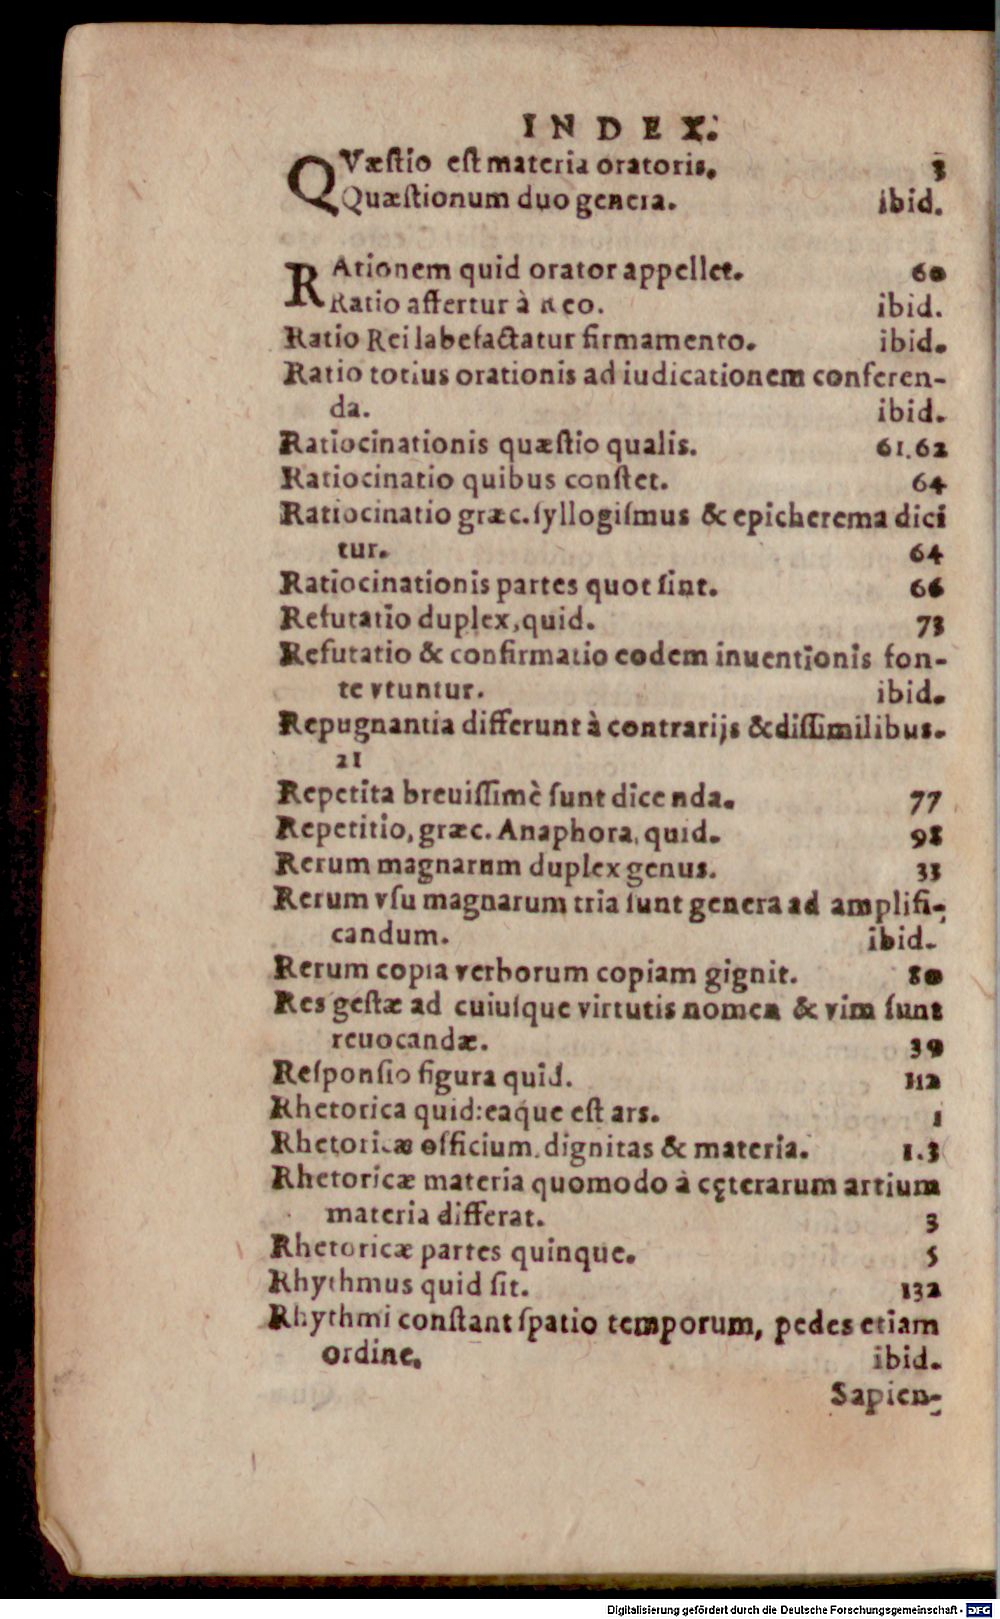 INDEX.
QVæstio est materia oratoris. 3
Quæstionum duo genera. ibid.
RAtionem quid orator appellet. 60
Ratio affertur à Reo. ibid.
Ratio Rei labefactatur firmamento. ibid.
Ratio totius orationis ad iudicationem conferen-
da. ibid.
Ratiocinationis quæstio qualis. 61.62
Ratiocinatio quibus constet. 64
Ratiocinatio græc. syllogismus & epicherema dici
tur. 64
Ratiocinationis partes quot sint. 66
Refutatio duplex, quid. 73
Refutatio & confirmatio eodem inuentionis fon-
te vtuntur. ibid.
Repugnantia differunt à contrarijs & dissimilibus.
21
Repetita breuissimè sunt dicenda. 77
Repetitio, græc. Anaphora, quid. 98
Rerum magnarum duplex genus. 33
Rerum vsu magnarum tria sunt genera ad amplifi-
candum. ibid.
Rerum copia verborum copiam gignit. 80
Res gestæ ad cuiusque virtutis nomen & vim sunt
reuocandæ. 39
Responsio figura quid. 112
Rhetorica quid: eaque est ars. 1
Rhetoricæ officium. dignitas & materia. 1.3
Rhetoricæ materia quomodo à cęterarum artium
materia differat. 3
Rhetoricæ partes quinque. 5
Rhythmus quid sit. 132
Rhythmi constant spatio temporum, pedes etiam
ordine. ibid.
Sapien-
Digitalisierung gefördert durch die Deutsche Forschungsgemeinschaft - DFG